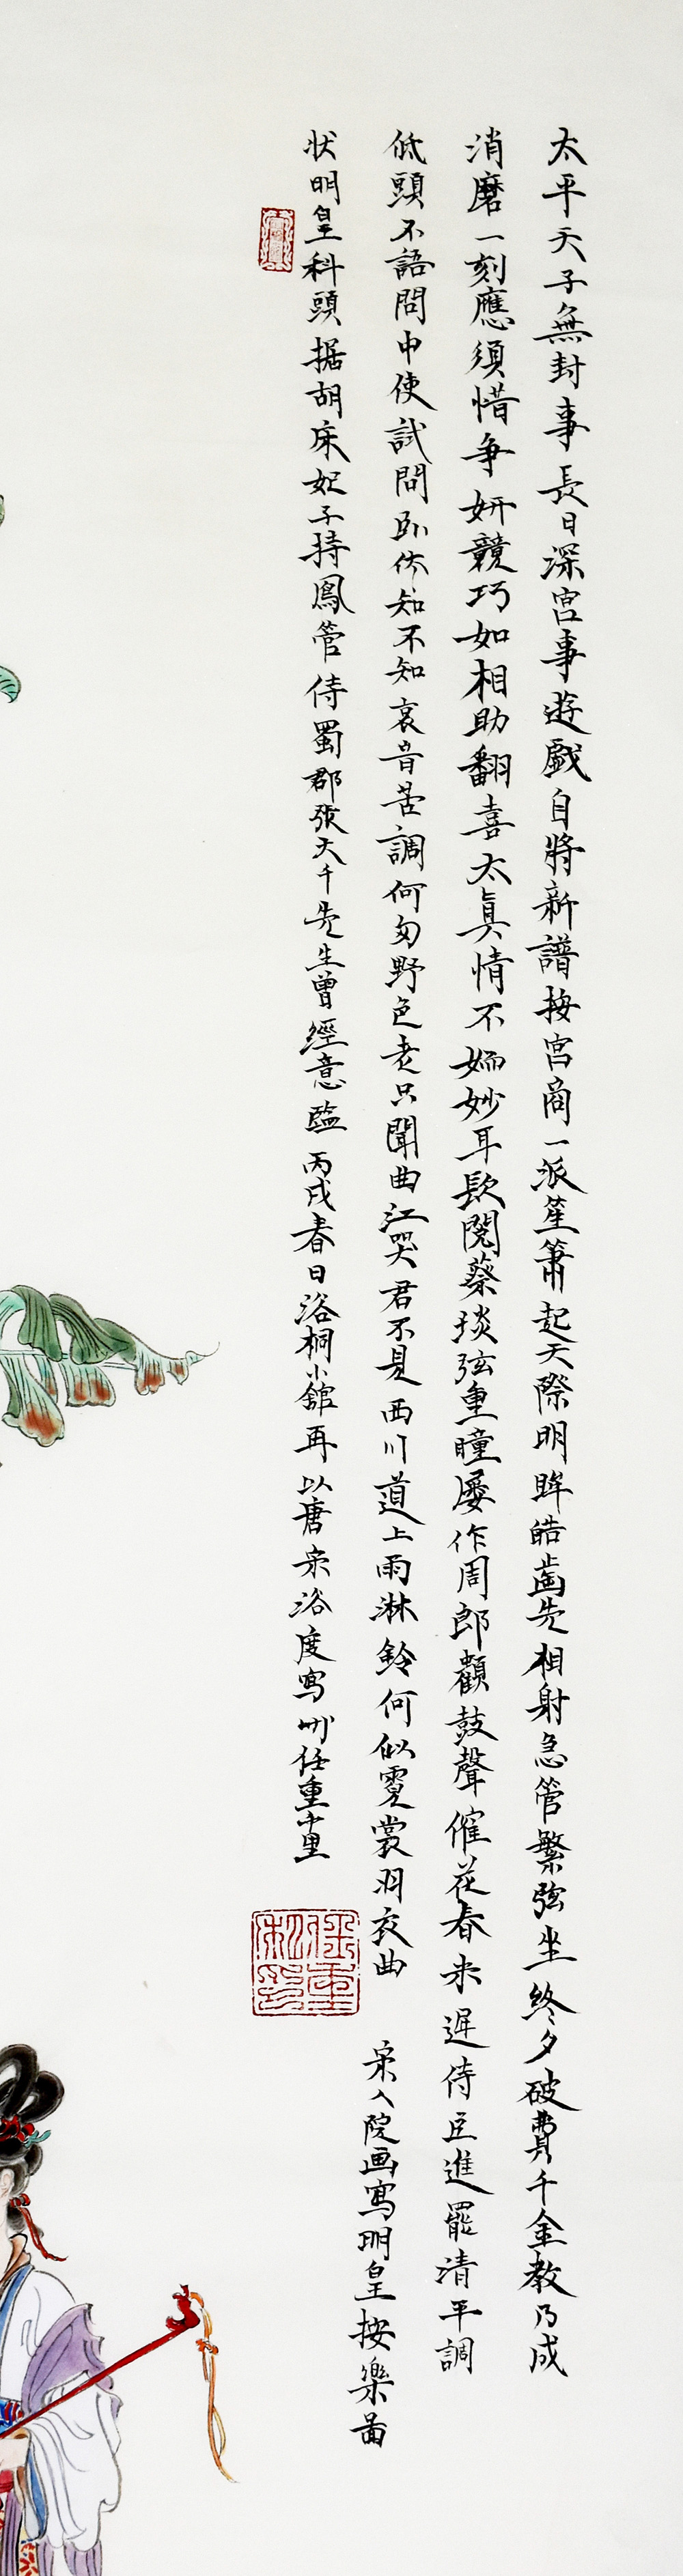 太平天子無封事長日深宮事遊戲自將新譜按宮商一派笙簫起天際明眸皓齒先相射急管繁弦坐終夕破費千金教乃成
消磨一刻應須惜爭妍競巧如相助翻喜太真情不妬妙耳欺閱蔡琰弦重瞳屢作周郎顧鼓聲催花春来遲侍臣進罷清平調
低頭不語問中使試問卧依知不知哀音苦調何匆野色老只聞曲江哭君不見西川道上雨淋鈴何似霓裳羽衣曲 宋人院画寫明皇按樂圖
状明皇科頭据胡床妃子持鳳管侍蜀郡張大千先生曾經意臨 丙戌春日浴桐小舘再以唐宋法度寫此任重畫
任重私印